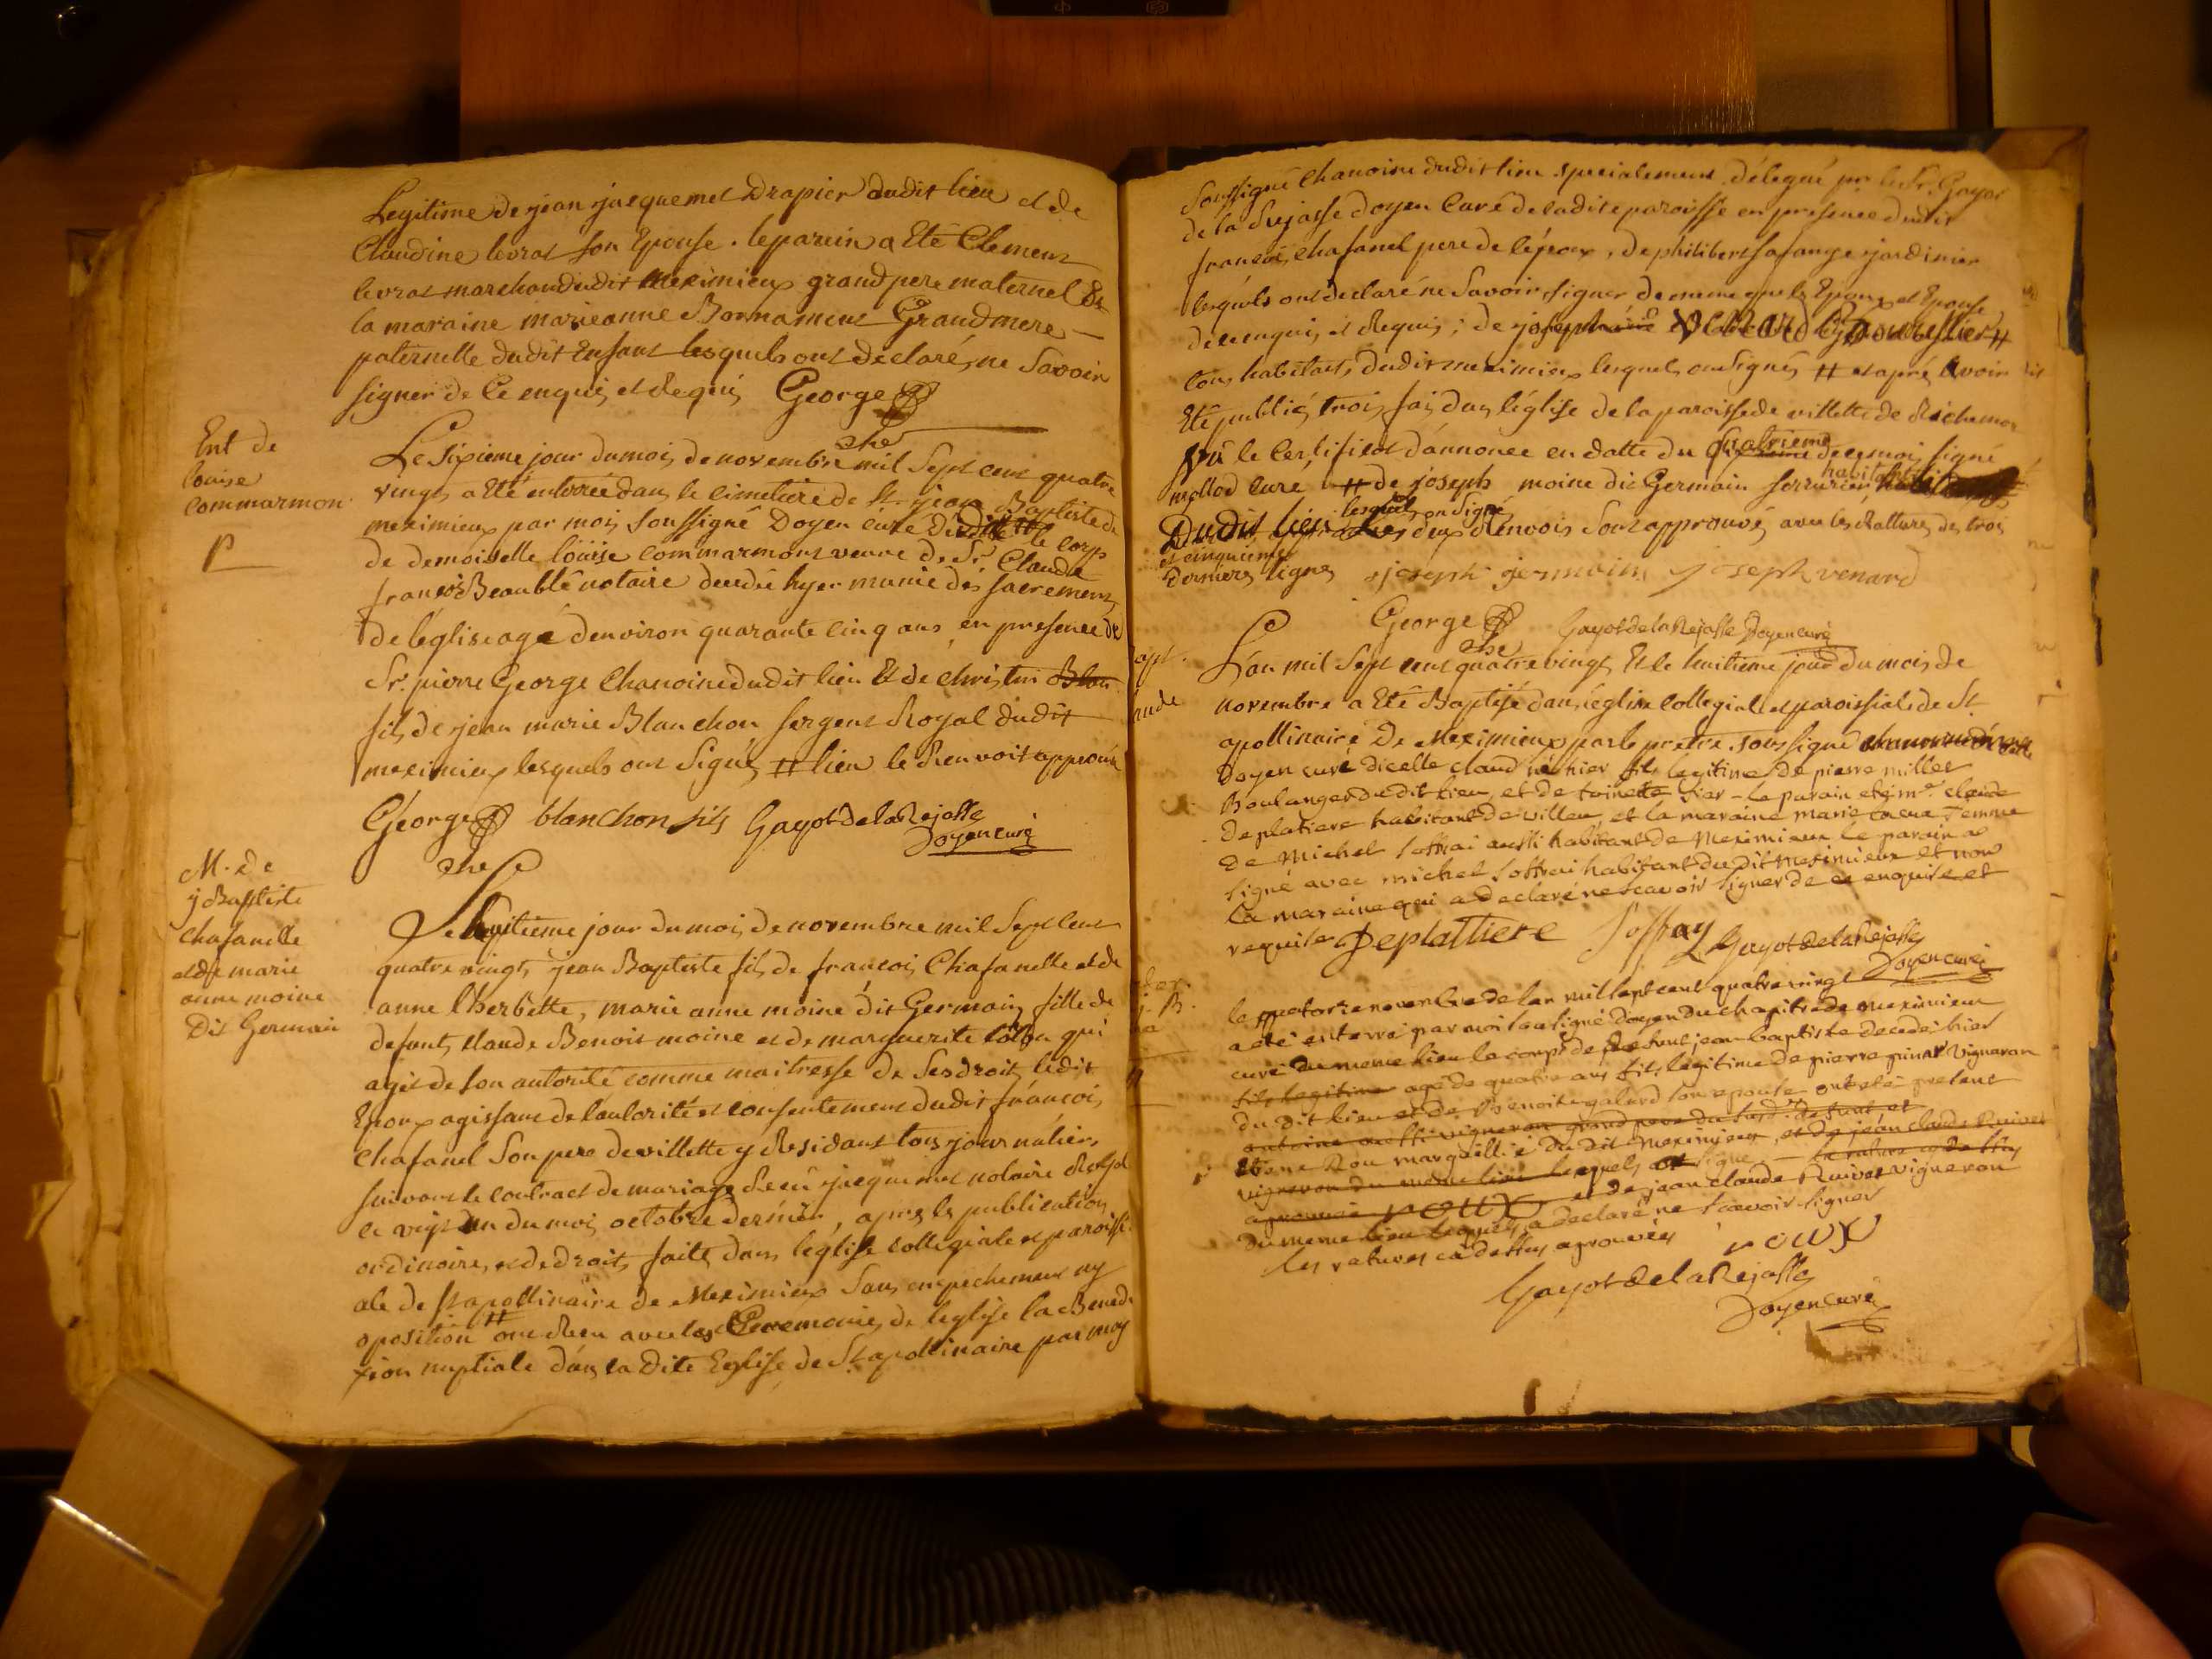 Legitime de jean jacquemet Drapier dudit lieu et de
Claudine levrat son Epouse. le parein a Eté Clement
levrat marchand dudit Meximieux grand pere maternel Et
la maraine marieanne Bonnament Grandmere
paternelle dudit Enfant lesquels ont declaré ne Savoir
signer de Ce enquis et Requis George
Ent de
louise
commarmon
Le Sixieme jour du mois de novembre mil Sept cent quatre
vingt a Eté enterrée dans le cimetiere de St. jean Baptiste de
meximieux par moi Soussigné Doyen Curé le corps
de demoiselle loüise commarmont veuve de Sr. Claude
françois Beaublé notaire decedée hyer munie des sacrements
de l'église agée d'environ quarante cinq ans en presence de
Sr. pierre George Chanoine dudit lieu Et de christin
fils de jean marie Blanchon sergent Royal dudit
meximieux lesquels ont Signés # lieu le Renvoit approuvé
George blanchon fils Gayot de la Rejasse
Doyen curé
M. de
j Baptiste
chafanelle
et de marie
anne moine
Dit Germain
Le huitieme jour du mois de novembre mil Sept cent
quatre vingt jean Baptiste fils de françois Chafanelle et de
anne lherbette, marie anne moine dit Germain fille de
defunts claude Benoit moine et de marguerite qui
agit de son autorité comme maitresse de Ses droits ledit
Epoux agissant de l'autorité et consentement dudit françois
Chafanel Son pere de villette y Residant tous journaliers
suivant le contract de mariage Reçu jacquemet notaire Royal
le vingt un du mois octobre dernier, après les publications
ordinaires, et de droit, faites dans l'église collegiale et paroissi
ale de St apollinaire de Meximieux Sans empechement ny
oposition # ont Reçu avec les Ceremonies de l'eglise la Benedi
xion nuptiale dans la Dite Eglise de St apollinaire par moy
Soussigné Chanoine dudit lieu specialement délegué par le Sr. Gayot
de la Rejasse doyen Curé de ladite paroisse en presence dudit
françois chafanel pere de l'époux, de philibert jardinier
lesquels ont declaré ne Savoir signer de meme que les Epoux et Epouse
de ce enquis et Requis; de joseph venard #
tous habitants dudit meximieux lesquels ont Signés # et après avoir
Eté publiés trois fois dans l'église de la paroisse de villette de Richemont
vû le Certificat d'annonce en datte du de ce mois signé
mollod curé # de joseph moine dit Germain serrurier habitant
Dudit lieu lesquels ont Signé deux Renvois sont approuvés avec les Rattures des trois
et cinquieme
dernieres lignes joseph germain joseph venard
George Gayot de la Rejasse Doyen curé
L'an mil Sept cent quatre vingt, Et le huitieme jour du mois de
novembre a Eté Baptisé dans l'église collegiale et paroissiale de St
apollinaire de Meximieux par le pretre soussigné
Doyen curé dicelle claude né hier fils legitime de pierre millet
Boulanger dudit lieu, et de toinette – le parain eté mr. claude
deplatiere habitant de villieu, et la maraine marie femme
de michel soffrai aussi habitant de meximieux le parain a
signé avec michel soffrai habitant du dit meximieux et non
la maraine qui a declaré ne scavoir signer de ce enquise et
requise Deplattiere Soffray Gayot de la Rejasse
Doyen curé
le quatorze novembre de lan mil sept cent quatre vingt
a été enterré par moi soussigné doyen du chapitre de meximieux
curé du meme lieu le corps de jean baptiste decedé hier
fils legitime agé de quatre ans fils legitime de pierre pinat vigneron
du dit lieu et de Benoite galard son epouse ont eté present
antoine aussi vigneron grand pere du susd. defunt et
Etiene Rou marguillié du dit meximieux, et de jean claude Ruivet
vigneron du meme lieu lesquels ont signé
roux et de jean claude Ruivet vigneron
du meme lieu lequel a declaré ne scavoir signer
les ratures cà dessus aprouvées roux
Gayot de la Rejasse
Doyen curé